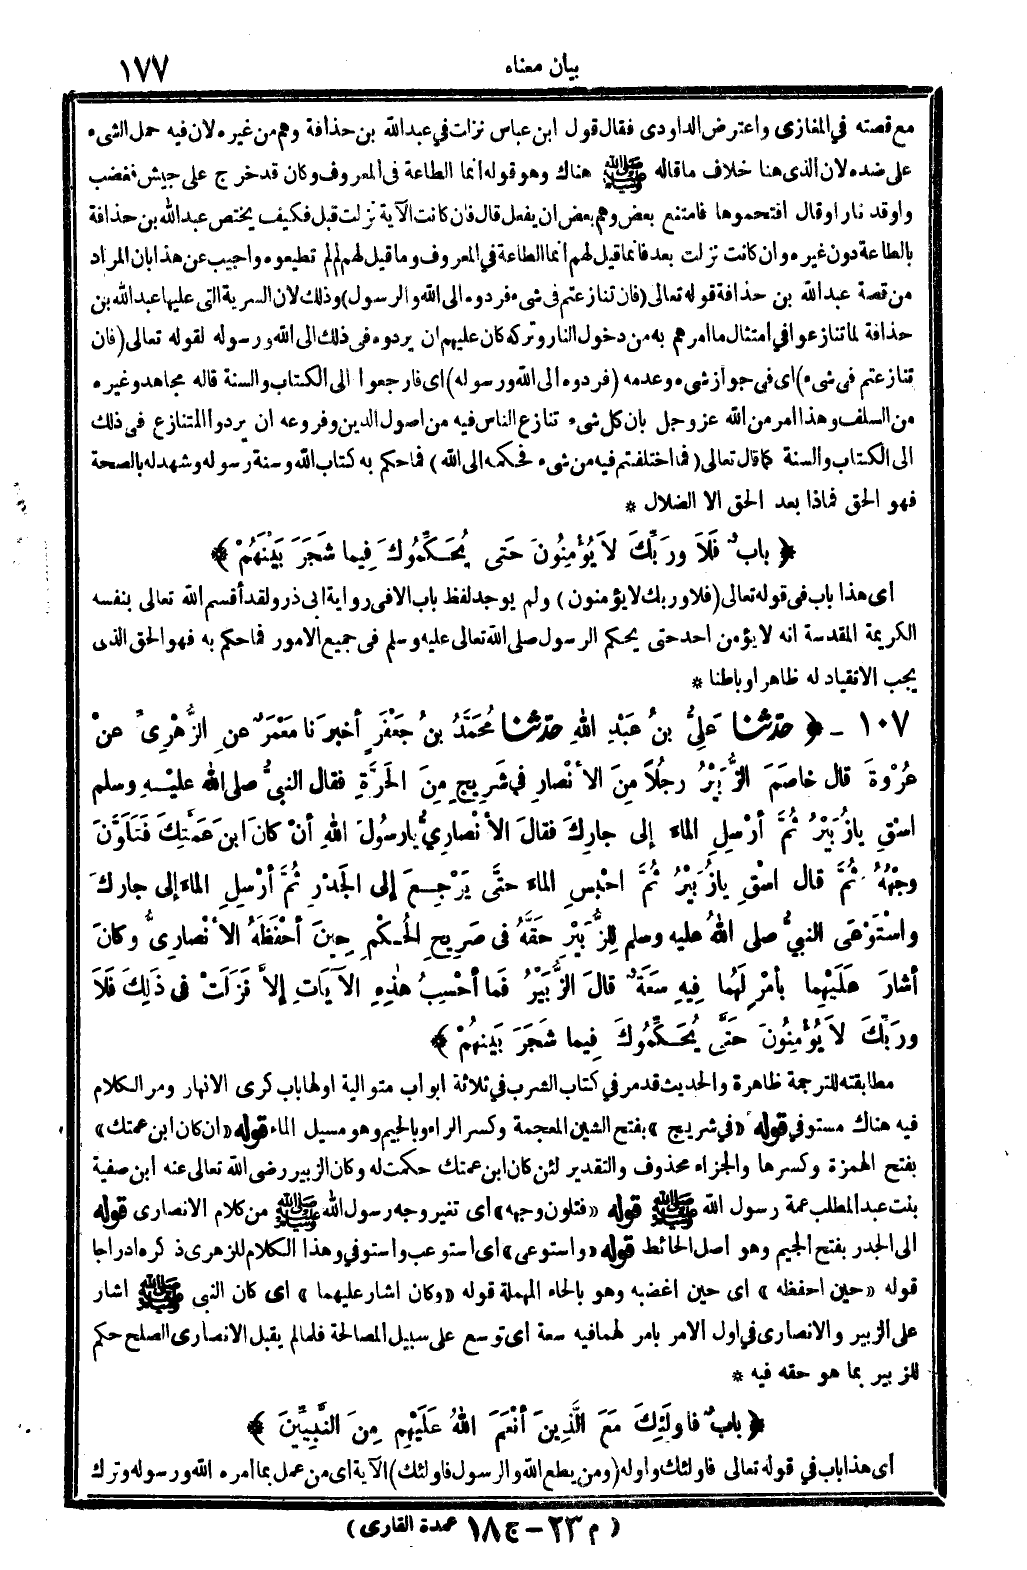 بيان معناه
١٧٧
مع قصته في المغازى واعترض الداودى فقال قول ابن عباس نزلت في عبدالله بن حذافة وهم من غيره لان فيه حمل الشىء
على ضده لان الذى هنا خلاف ماقاله ﷺ هناك وهو قوله انما الطاعة فى المعروف وكان قد خرج على جيش فغضب
واوقد نارا وقال اقتحموها فامتنع بعض وهم بعض ان يفعل قال فان كانت الآية نزلت قبل فكيف يختص عبدالله بن حذافة
بالطاعة دون غيره وان كانت نزلت بعد فانما قيل لهم انما الطاعة في المعروف وما قيل لهم لم لم تطيعوه واجيب عن هذا بان المراد
من قصة عبدالله بن حذافة قوله تعالى (فان تنازعتم فى شىء فردوه الى الله والرسول) وذلك لان السرية التى عليها عبدالله بن
حذافة لما تنازعوا في امتثال ما امرهم به من دخول النار وتركه كان عليهم ان يردوه فى ذلك الى الله ورسوله لقوله تعالى (فان
تنازعتم فى شىء) اى فى جواز شىء وعدمه (فردوه الى الله ورسوله) اى فارجعوا الى الكتاب والسنة قاله مجاهد وغيره
من السلف وهذا امر من الله عز وجل بان كل شىء تنازع الناس فيه من اصول الدين وفروعه ان يردوا المتنازع فى ذلك
الى الكتاب والسنة كما قال تعالى (فما اختلفتم فيه من شىء فحكمه الى الله) فما حكم به كتاب الله وسنة رسوله وشهد له بالصحة
فهو الحق فماذا بعد الحق الا الضلال *
﴿ بابٌ فَلَا وَرَبِّكَ لاَ يُؤْمِنُونَ حَتى يُحَكِّمُوكَ فِيما شَجَرَ بَيْنَهُمْ ﴾
اى هذا باب فى قوله تعالى (فلا وربك لا يؤمنون) ولم يوجد لفظ باب الا فى رواية ابى ذر ولقد أقسم الله تعالى بنفسه
الكريمة المقدسة انه لا يؤمن احد حتى يحكم الرسول صلى الله تعالى عليه وسلم فى جميع الامور فما حكم به فهو الحق الذى
يجب الانقياد له ظاهرا وباطنا *
١٠٧ ـ ﴿ حدّثنا عَلِيُّ بنُ عَبْدِ اللهِ حدّثنا مُحَمَّدُ بنُ جَعْفَرٍ أخبرَنا مَعْمَرٌ عنِ الزُّهْرِىِّ عنْ
عُرْوةَ قال خاصَمَ الزُّبَيْرُ رجُلاً مِنَ الأنْصارِ في شَرِيجٍ مِنَ الحَرَّةِ فقال النبيُّ صلى الله عليْـهِ وسلم
اسْقِ يازُبَيْرُ ثُمَّ أرْسِلِ الماءَ إلى جارِكَ فقالَ الأنْصارِيُّ يارسُولَ اللهِ أنْ كانَ ابنَ عَمَّتِكَ فَتَلَوَّنَ
وجْهُهُ ثُمَّ قال اسْقِ يازُبَيْرُ ثُمَّ احْبِسِ الماءَ حتَّى يَرْجِـعَ إلى الجَدْرِ ثُمَّ أرْسِلِ الماءَ إلى جارِكَ
واسْتَوْعَى النبيُّ صلى اللهُ عليه وسلم لِلزُّبَيْرِ حقَّهُ فى صَرِيحِ الْحُـكْمِ حِينَ أحْفَظَهُ الأنْصارِىُّ وكانَ
أشارَ عَلَيْهِما بأمْرٍ لَهُما فِيهِ سَعَةٌ قالَ الزُّبَيْرُ فَما أحْسِبُ هٰذِهِ الآيَاتِ إلاَّ نَزَلَتْ فى ذَلِكَ فَلَا
وربِّكَ لاَ يُؤْمِنُونَ حَتَّى يُحَـكِّمُوكَ فِيما شَجَرَ بَيْنَهُمْ ﴾
مطابقته للترجمة ظاهرة والحديث قد مر في كتاب الشرب في ثلاثة ابواب متوالية اولها باب كرى الانهار ومر الكلام
فيه هناك مستوفي قوله «في شريج» بفتح الشين المعجمة وكسر الراء وبالجيم وهو مسيل الماء قوله «ان كان ابن عمتك»
بفتح الهمزة وكسرها والجزاء محذوف والتقدير لئن كان ابن عمتك حكمت له وكان الزبير رضى الله تعالى عنه ابن صفية
بنت عبد المطلب عمة رسول الله ﷺ قوله «فتلون وجهه» اى تغير وجه رسول الله ﷺ من كلام الانصارى قوله
الى الجدر بفتح الجيم وهو اصل الحائط قوله «واستوعى» اى استوعب واستوفي وهذا الكلام للزهرى ذكره ادراجا
قوله «حين احفظه» اى حين اغضبه وهو بالحاء المهملة قوله «وكان اشار عليهما» اى كان النبى ﷺ اشار
على الزبير والانصارى في اول الامر بامر لهما فيه سعة اى توسع على سبيل المصالحة فلما لم يقبل الانصارى الصلح حكم
للزبير بما هو حقه فيه *
﴿ بابٌ فَاولَئِكَ مَعَ الَّذِينَ أنْعَمَ اللهُ عَلَيْهِمِ مِنَ النَّبِيِّينَ ﴾
اى هذا باب في قوله تعالى فاولئك واوله (ومن يطع الله والرسول فاولئك) الآية اى من عمل بما امره الله ورسوله وترك
( م ٢٣ – ج ١٨ عمدة القارى )